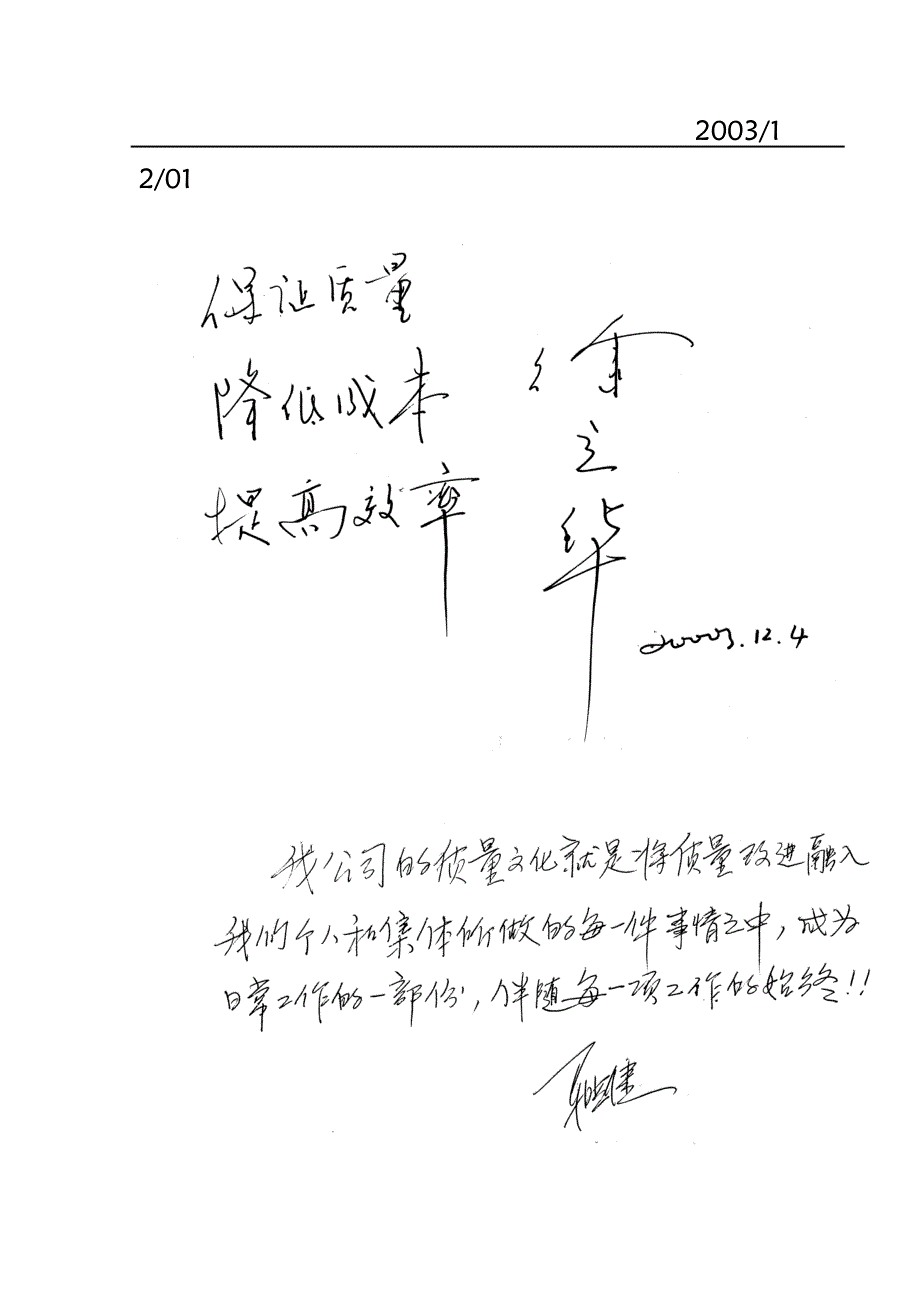 2003/1
2/01
保证质量
降低成本
提高效率
徐立华
2003.12.4
我公司的质量文化就是将质量改进融入
我们个人和集体所做的每一件事情之中，成为
日常工作的一部份，伴随每一项工作的始终!!